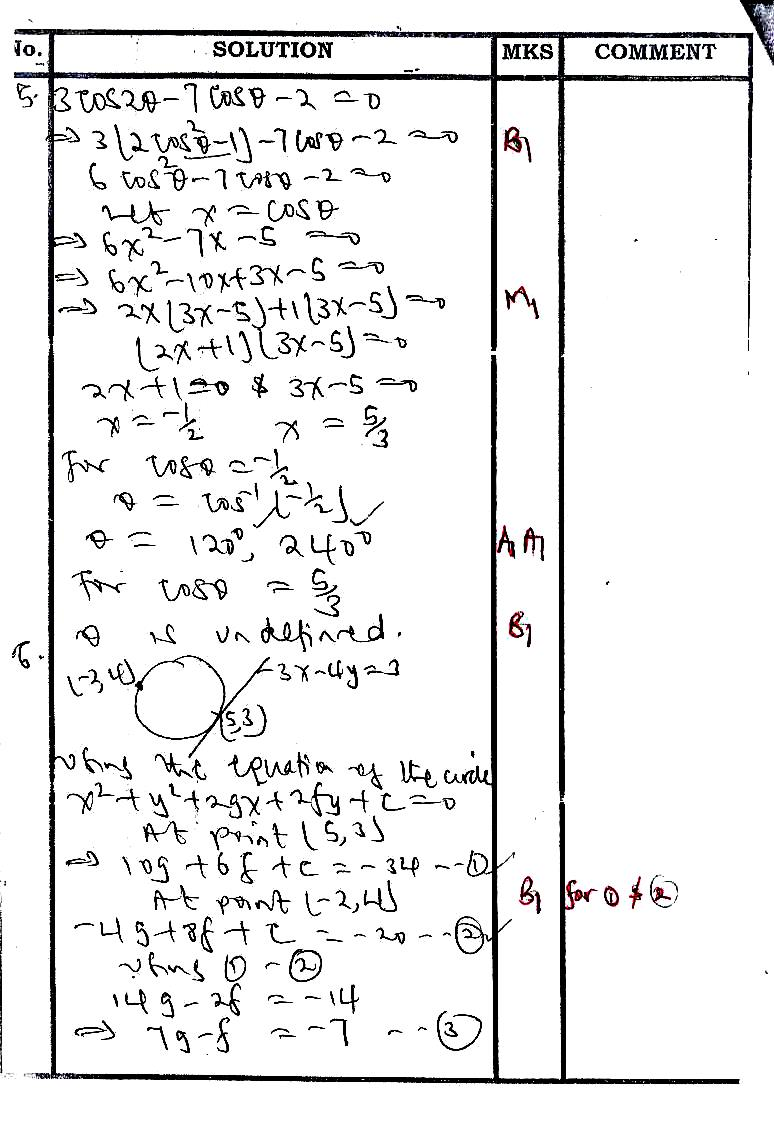 No. SOLUTION MKS COMMENT
5. 3 cos2θ - 7 cosθ - 2 = 0
⇒ 3(2cos²θ - 1) - 7cosθ - 2 = 0 B1
6 cos²θ - 7 cosθ - 2 = 0
Let x = cosθ
⇒ 6x² - 7x - 5 = 0
⇒ 6x² - 10x + 3x - 5 = 0
⇒ 2x(3x - 5) + 1(3x - 5) = 0 M1
(2x + 1)(3x - 5) = 0
2x + 1 = 0 & 3x - 5 = 0
x = -1/2 x = 5/3
For cosθ = -1/2
θ = cos⁻¹(-1/2)
θ = 120°, 240° A1 A1
For cosθ = 5/3
θ is undefined. B1
6.
(-3,4) 3x - 4y = 3
(5,3)
Using the equation of the circle
x² + y² + 2gx + 2fy + c = 0
At point (5,3)
⇒ 10g + 6f + c = -34 -- ①
At point (-2,4) B1 for ① & ②
-4g + 8f + c = -20 -- ②
Using ① - ②
14g - 2f = -14
⇒ 7g - f = -7 -- ③